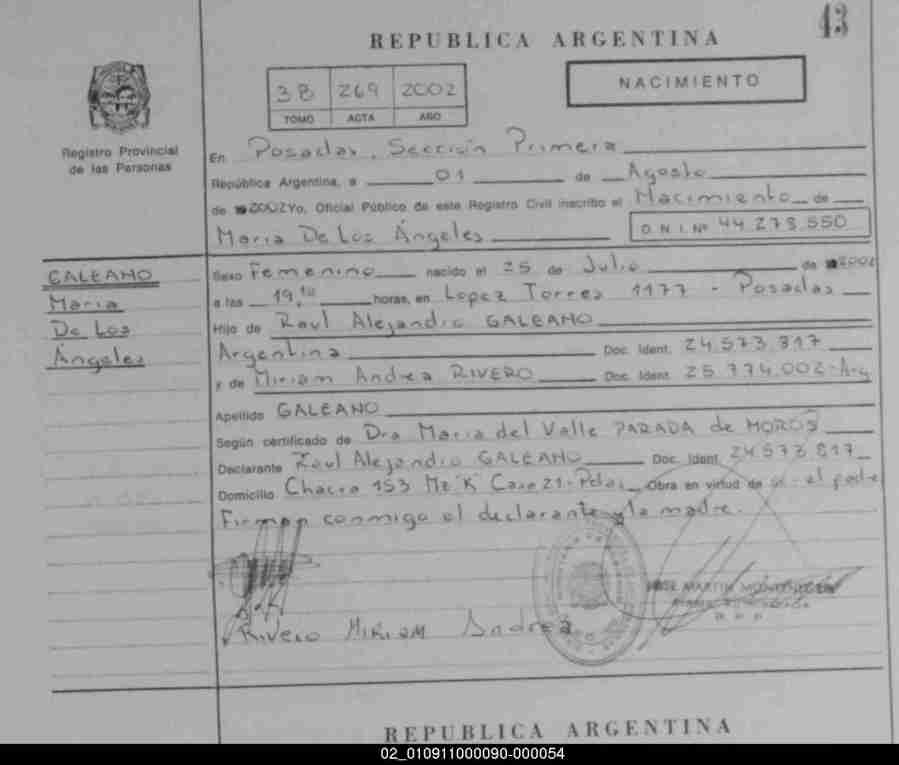 43
REPUBLICA ARGENTINA
3B 269 2002
TOMO ACTA AÑO
NACIMIENTO
Registro Provincial
de las Personas
En Posadas, Sección Primera
República Argentina, a 01 de Agosto
de 2002 Yo, Oficial Público de este Registro Civil inscribo el Nacimiento de
Maria De Los Ángeles D.N.I. Nº 44.278.550
GALEANO
Maria
De Los
Ángeles
Sexo Femenino nacido el 25 de Julio de 2002
a las 19,10 horas, en Lopez Torres 1177 - Posadas
Hijo de Raul Alejandro GALEANO
Argentina Doc. Ident. 24.573.817
y de Miriam Andrea RIVERO Doc. Ident. 25.774.002-Arg
Apellido GALEANO
Según certificado de Dra Maria del Valle PARADA de MOROS
Declarante Raul Alejandro GALEANO Doc. Ident. 24.573.817
Domicilio Chacra 153 Mz "K" Casa 21-Pdas Obra en virtud de el padre
Firman conmigo el declarante y la madre.
MARTIN
Rivero MIRIAM Andrea
REPUBLICA ARGENTINA
02_010911000090-000054